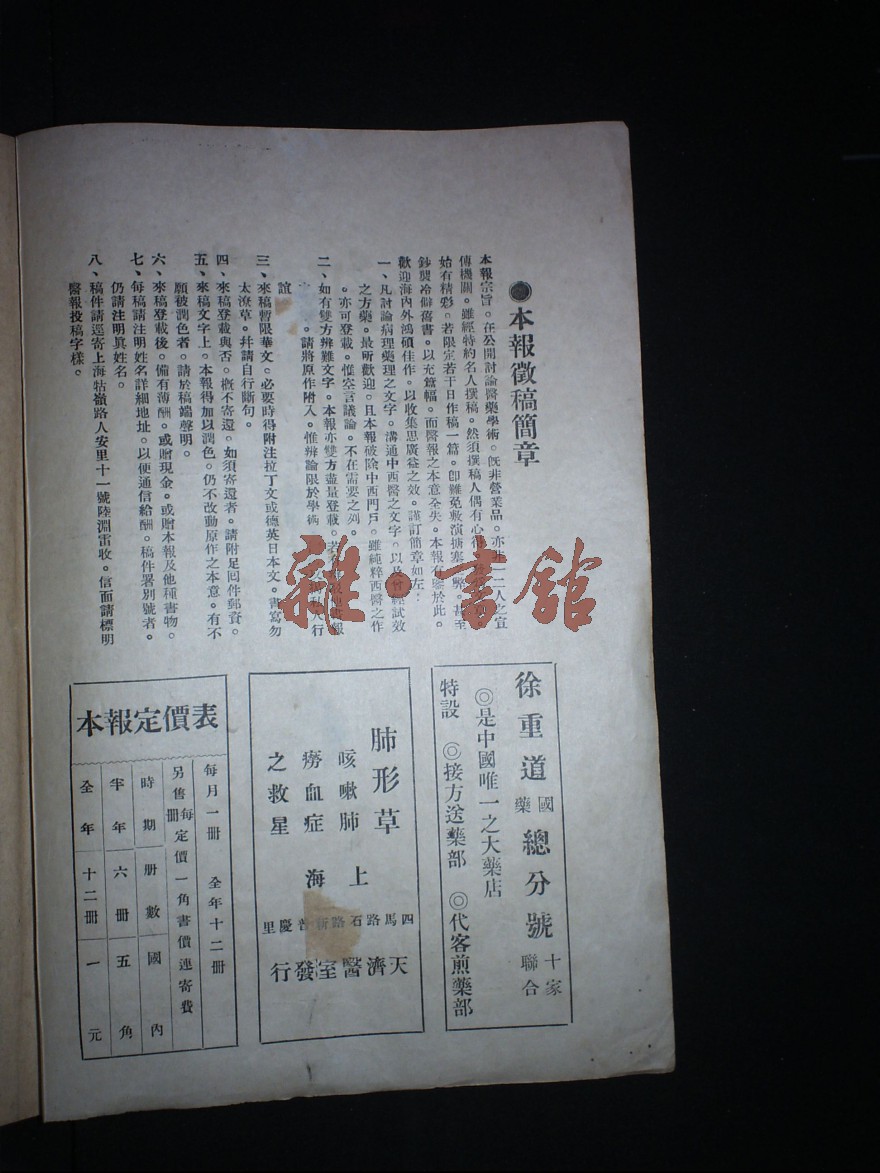 ●本報徵稿簡章
本報宗旨。在公開討論醫藥學術。旣非營業品。亦非一二人之宣
傳機關。雖經特約名人撰稿。然須撰稿人偶有心得
始有精彩。若限定若干日作稿一篇。卽難免敷演搪塞 弊。甚至
鈔襲冷僻舊書。以充篇幅。而醫報之本意全失。本報有鑒於此。
歡迎海內外鴻碩佳作。以收集思廣益之效。謹訂簡章如左：
一、凡討論病理藥理之文字。溝通中西醫之文字。以及曾經試效
之方藥。最所歡迎。且本報破除中西門戶。雖純粹西醫之作
。亦可登載。惟空言議論。不在需要之列。
二、如有雙方辨難文字。本報亦雙方盡量登載。若
。請將原作附入。惟辨論限於學術 私人行
誼
三、來稿暫限華文。必要時得附注拉丁文或德英日本文。書寫勿
太潦草。幷請自行斷句。
四、來稿登載與否。槪不寄還。如須寄還者。請附足回件郵資。
五、來稿文字上。本報得加以潤色。仍不改動原作之本意。有不
願被潤色者。請於稿端聲明。
六、來稿登載後。備有薄酬。或贈現金。或贈本報及他種書物。
七、每稿請注明姓名詳細地址。以便通信給酬。稿件署別號者。
仍請注明眞姓名。
八、稿件請逕寄上海牯嶺路人安里十一號陸淵雷收。信面請標明
醫報投稿字樣。
雜·書館
徐重道國藥總分號十家聯合
◎是中國唯一之大藥店
特設 ◎接方送藥部 ◎代客煎藥部
肺形草
咳嗽肺
癆血症
之救星
上海
四馬路石路新普慶里
天濟醫室發行
本報定價表
每月一冊 全年十二冊
另售每冊定價一角書價連寄費
時期 冊數 國內
半年 六冊 五角
全年 十二冊 一元